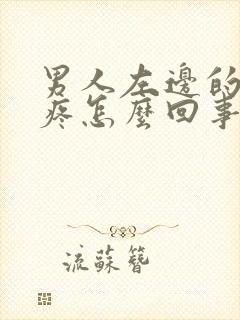 男人左邊的
疼怎麼回事
流蘇簪